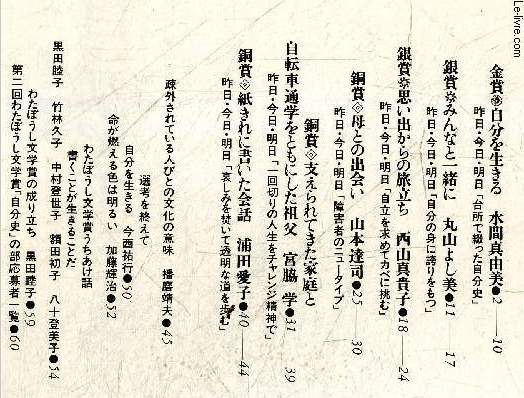 金賞 自分を生きる 水間真由美●2
昨日・今日・明日「台所で綴った自分史」──10
銀賞 みんなと一緒に 丸山よし美●11
昨日・今日・明日「自分の身に誇りをもつ」──17
銀賞 思い出からの旅立ち 西山真貴子●18
昨日・今日・明日「自立を求めてカベに挑む」──24
銅賞 母との出会い 山本達司●25
昨日・今日・明日「障害者のニュータイプ」──30
銅賞 支えられてきた家庭と
自転車通学をともにした祖父 宮脇 学●31
昨日・今日・明日「一回切りの人生をチャレンジ精神で」──39
銅賞 紙きれに書いた会話 浦田愛子●40
昨日・今日・明日「哀しみを焚いて透明な道を歩む」──44
疎外されている人びとの文化の意味 播磨靖夫●45
選考を終えて
自分を生きる 今西祐行●50
命が燃える色は明るい 加藤輝治●52
わたぼうし文学賞うちあけ話
書くことが生きることだ
黒田睦子 竹林久子 中村登世子 額田切子 八十登美子●54
わたぼうし文学賞の成り立ち 黒田睦子●59
第二回わたぼうし文学賞「自分史」の部応募者一覧●60
Le-livre.com